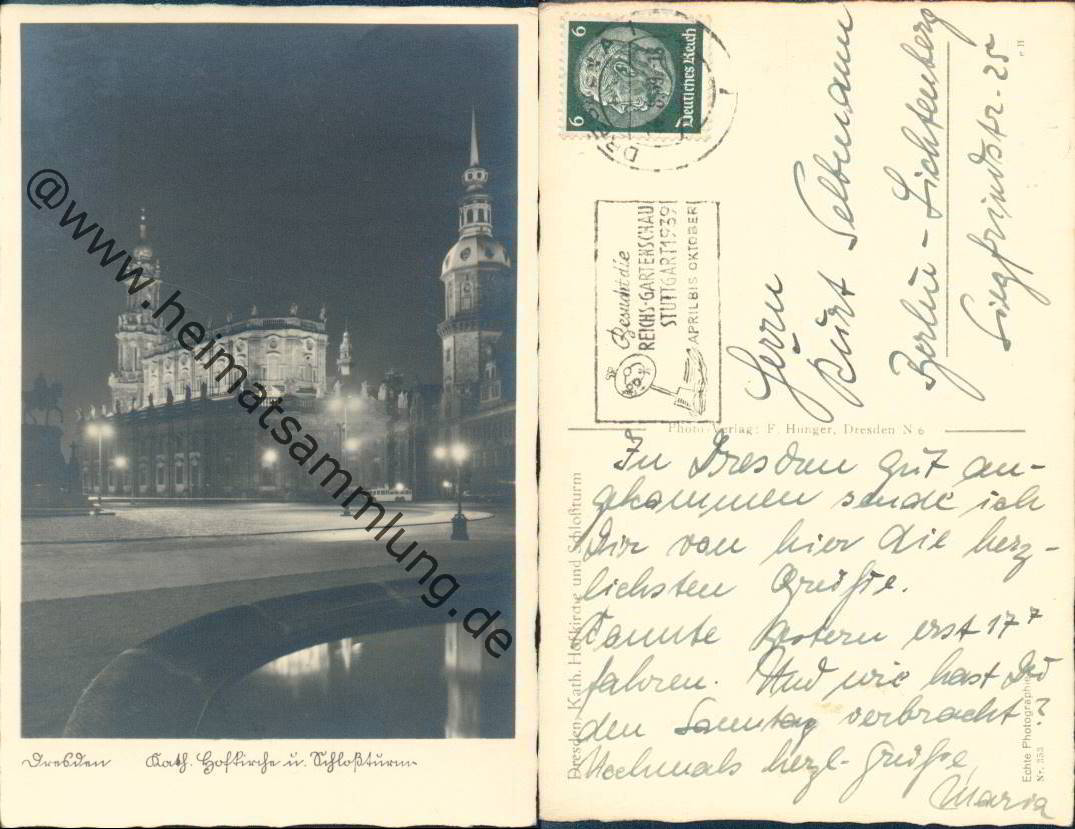 @www.heimatsammlung.de
Dresden Kath. Hofkirche u. Schloßturm
6 6
Deutsches Reich
DRESDEN A
Besucht die
REICHS-GARTENSCHAU
STUTTGART 1939
APRIL BIS OKTOBER
Herrn
Kurt Selbmann
Berlin - Lichtenberg
Siegfriedstr. 25
Photo-Verlag: F. Hunger, Dresden N 6
Dresden, Kath. Hofkirche und Schloßturm
In Dresden gut an-
gekommen sende ich
Dir von hier die herz-
lichsten Grüße.
Konnte gestern erst 17 7
fahren. Und wie hast Du
den Sonntag verbracht?
Nochmals herzl. Grüße
Maria
Echte Photographie
Nr. 353